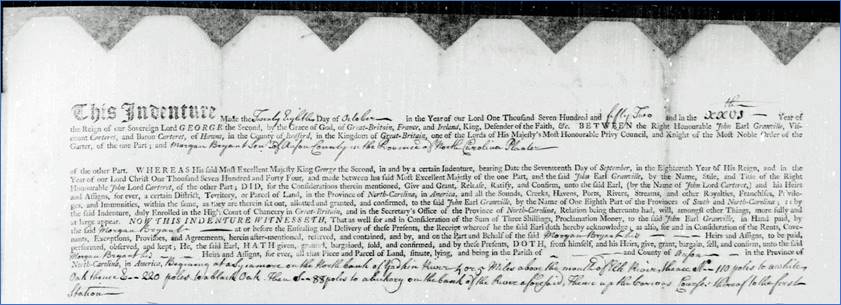 This Indenture Made the Twenty Eighth Day of October in the Year of our Lord One Thousand Seven Hundred and fifty Two and in the XXVI th Year of
the Reign of our Sovereign Lord GEORGE the Second, by the Grace of God, of Great-Britain, France, and Ireland, King, Defender of the Faith, &c. BETWEEN the Right Honourable John Earl Granville, Vis-
count Carteret, and Baron Carteret, of Hawnes, in the County of Bedford, in the Kingdom of Great-Britain, one of the Lords of His Majesty's Most Honourable Privy Council, and Knight of the Most Noble Order of the
Garter, of the one Part; and Morgan Bryant of Anson County in the Province of North Carolina Planter
of the other Part. WHEREAS His said Most Excellent Majesty King George the Second, in and by a certain Indenture, bearing Date the Seventeenth Day of September, in the Eighteenth Year of His Reign, and in the
Year of our Lord Christ One Thousand Seven Hundred and Forty Four, and made between his said Most Excellent Majesty of the one Part, and the said John Earl Granville, by the Name, Stile, and Title of the Right
Honourable John Lord Carteret, of the other Part; DID, for the Considerations therein mentioned, Give and Grant, Release, Ratify, and Confirm, unto the said Earl, (by the Name of John Lord Carteret,) and his Heirs
and Assigns, for ever, a certain District, Territory, or Parcel of Land, in the Province of North-Carolina, in America, and all the Sounds, Creeks, Havens, Ports, Rivers, Streams, and other Royalties, Franchises, Privile-
ges, and Immunities, within the same, as they are therein set out, allotted and granted, and confirmed, to the said John Earl Granville, by the Name of One Eighth Part of the Provinces of South and North-Carolina; as by
the said Indenture, duly Enrolled in the High Court of Chancery in Great-Britain, and in the Secretary's Office of the Province of North-Carolina, Relation being thereunto had, will, amongst other Things, more fully and
at large appear. NOW THIS INDENTURE WITNESSETH, That as well for and in Consideration of the Sum of Three Shillings, Proclamation Money, to the said John Earl Granville, in Hand paid, by
the said Morgan Bryant at or before the Ensealing and Delivery of these Presents, the Receipt whereof he the said Earl doth hereby acknowledge; as also, for and in Consideration of the Rents, Cove-
nants, Exceptions, Provisoes, and Agreements, herein after-mentioned, reserved, and contained, and by, and on the Part and Behalf of the said Morgan Bryant his Heirs and Assigns, to be paid,
performed, observed, and kept; He, the said Earl, HATH given, granted, bargained, sold, and confirmed, and by these Presents, DOTH, from himself, and his Heirs, give, grant, bargain, sell, and confirm, unto the said
Morgan Bryant his Heirs and Assigns, for ever, all that Piece and Parcel of Land, situate, lying, and being in the Parish of and County of Anson in the Province of
North-Carolina, in America, Beginning at a Sycamore on the North bank of Yadkin River 4 or 5 Miles above the mouth of Deep River thence N 110 poles to a white
Oak thence E 220 poles to a black Oak Then S 88 poles to a hickory on the bank of the River aforesaid, Thence up the Various Courses thereof to the first
Station